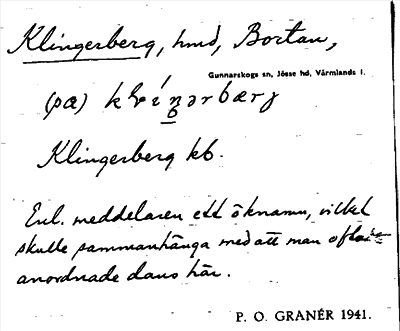 Klingerberg, hmd, Bortan,
Gunnarskogs sn, Jösse hd, Värmlands l.
(pa)
Klingerberg kb.
Enl. meddelaren ett öknamn, vilket
skulle sammanhänga med att man oftare
anordnade dans här.
P. O. GRANÉR 1941.